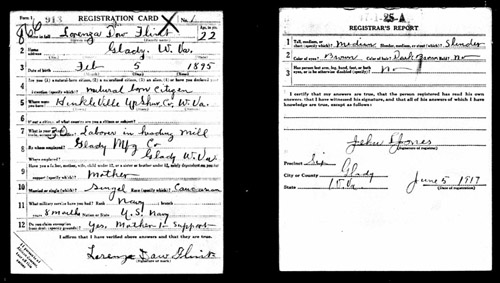 Form 1 913 REGISTRATION CARD No. 1
866
Lorenza Dow Flint
Age, in yrs.
22
2 Home address Glady. W. Va.
3 Date of birth Feb 5 1895
4 Are you (1) a natural-born citizen, (2) a naturalized citizen, (3) an alien, (4) or have you declared your
intention (specify which)? natural born citizen
5 Where were you born? Hinkleville Upshur, Co, W. Va.
6 If not a citizen, of what country are you a citizen or subject?
7 What is your Laborer in heading mill
8 By whom employed? Glady Mfg Co
Where employed? Glady W. Va
9 Have you a father, mother, wife, child under 12, or a sister or brother under 12, solely dependent on you for
support (specify which)? Mother
10 Married or single (which)? Singel Race (specify which)? Caucasian
11 What military service have you had? Rank Navy branch
years 8 months Nation or State U.S. Navy
12 Do you claim exemption from draft (specify grounds)? Yes, Mother to Support
I affirm that I have verified above answers and that they are true.
Lorenza Daw Flint
(Signature or mark)
25-A
REGISTRAR'S REPORT
1 Tall, medium, or short (specify which)? Medium Slender, medium, or stout (which)? Slender
2 Color of eyes? Brown Color of hair? Dark Brown Bald? No
3 Has person lost arm, leg, hand, foot, or both eyes, or is he otherwise disabled (specify)? No
I certify that my answers are true, that the person registered has read his own
answers, that I have witnessed his signature, and that all of his answers of which I have
knowledge are true, except as follows:
Jones
(Signature of registrar)
Precinct Six
City or County Glady
State W. Va.
June 5 1917
(Date of registration)